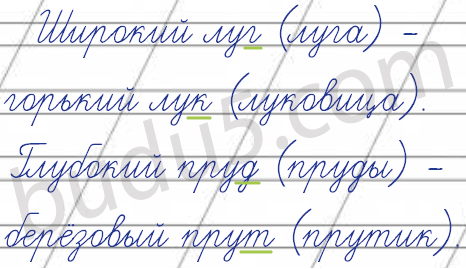 Широкий луг (луга) –
горький лук (луковица).
Глубокий пруд (пруды) –
берёзовый прут (прутик).
budu5.com